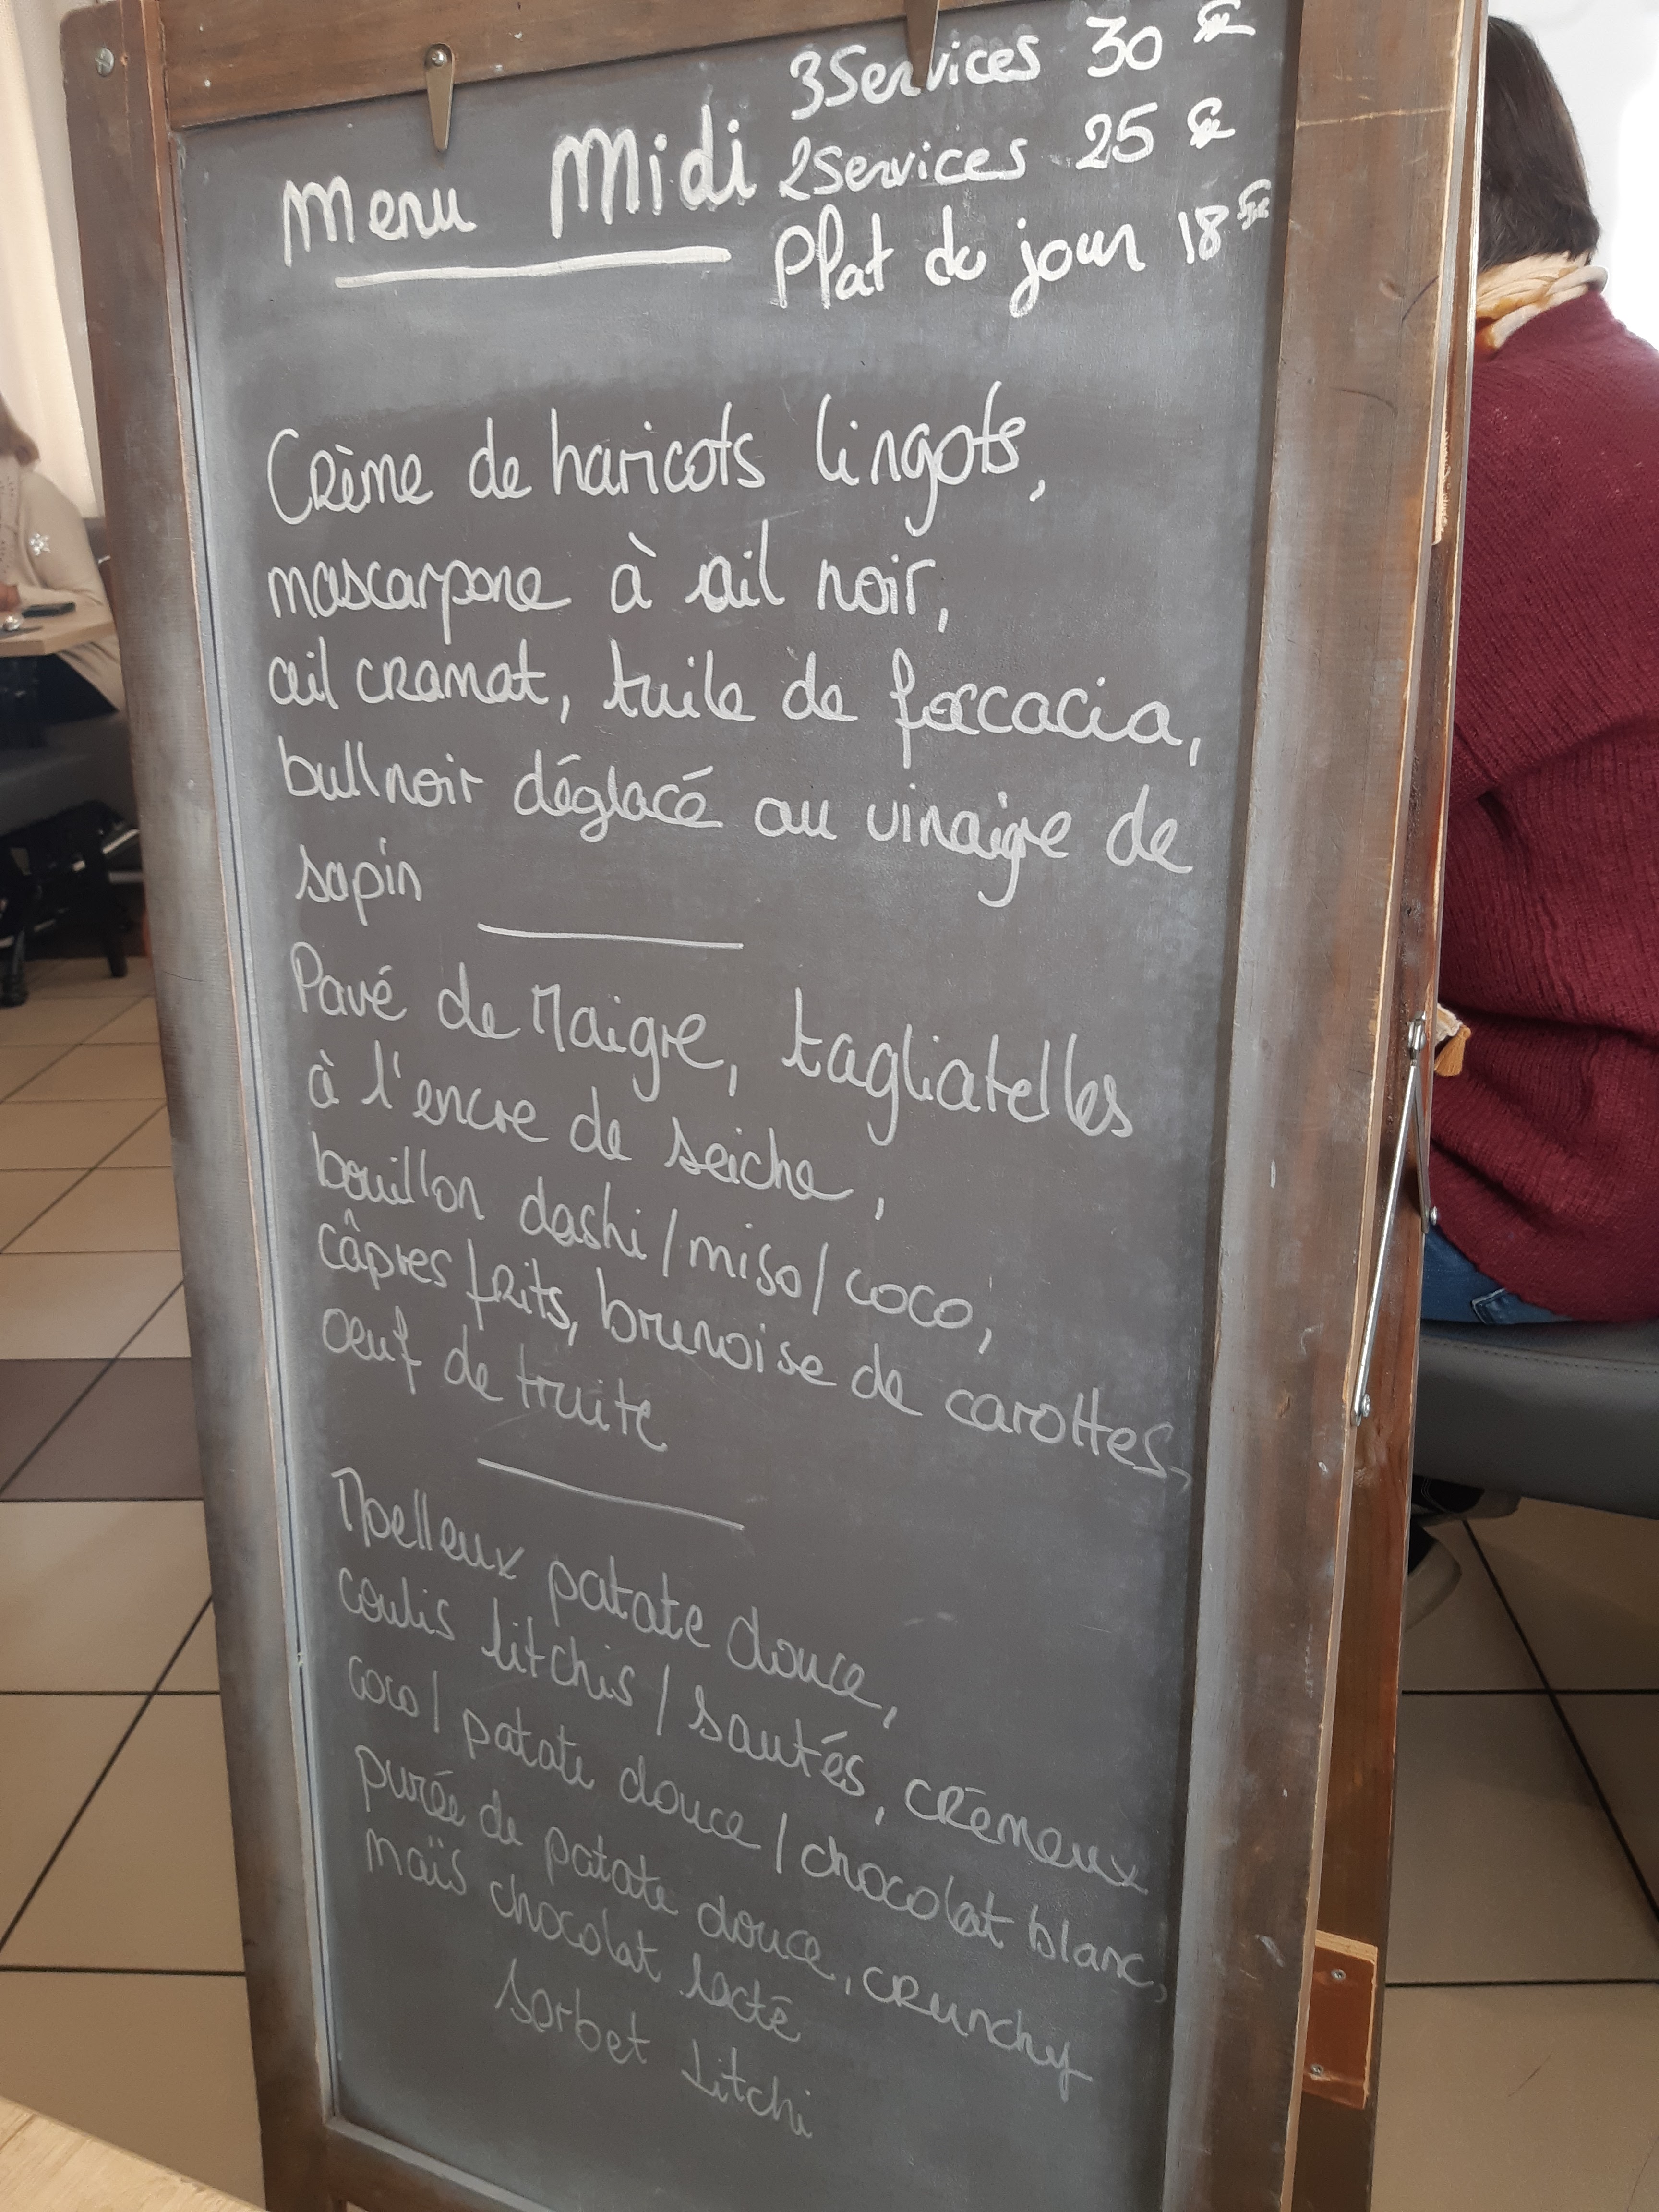 3Services 30 €
Menu Midi 2Services 25 €
Plat du jour 18 €
Crème de haricots lingots,
mascarpone à ail noir,
ail cramat, tuile de foccacia,
bullnoir déglacé au vinaigre de
sapin
Pavé de Maigre, tagliatelles
à l'encre de seiche,
bouillon dashi/miso/coco,
câpres frits, brunoise de carottes,
oeuf de truite
Moelleux patate douce,
coulis litchis / sautés, crémeux
coco/ patate douce / chocolat blanc,
purée de patate douce, crunchy
maïs chocolat lacté
sorbet Litchi